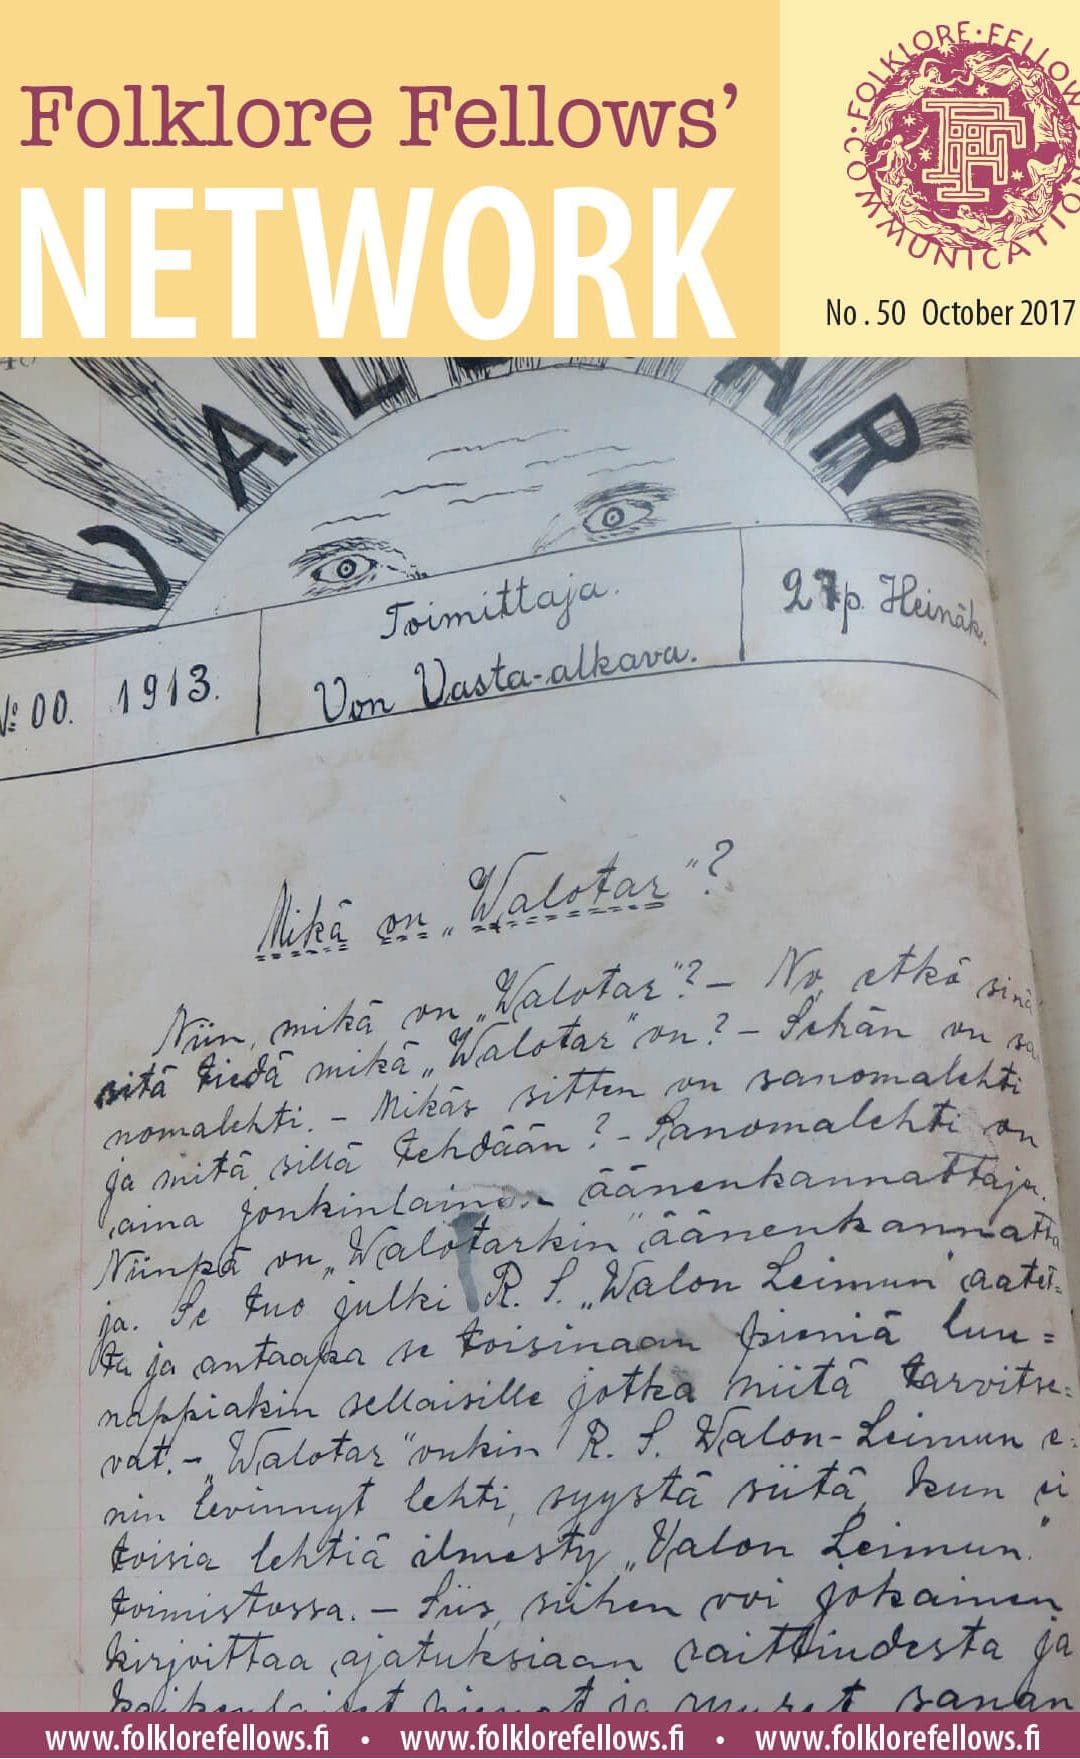 Folklore Fellows’
NETWORK
FOLKLORE · FELLOWS
COMMUNICATIO
FF
No . 50 October 2017
VAL
AR
№ 00. 1913.
Toimittaja.
Von Vasta-alkava.
27p. Heinäk.
Mikä on „Walotar”?
Niin, mikä on „Walotar”? – No, etkö sinä
sitä tiedä mikä „Walotar” on? – Sehän on sa
nomalehti. – Mikäs sitten on sanomalehti
ja mitä sillä tehdään? – Sanomalehti on
aina jonkinlainen äänenkannattaja.
Niinpä on „Walotarkin” äänenkannatta
ja. Se tuo julki R. S. „Walon Leimun” aatet-
ta ja antaapa se toisinaan pieniä luu=
nappiakin sellaisille jotka niitä tarvitse=
vat. – „Walotar” onkin R. S. Walon-Leimun e=
nin levinnyt lehti, syystä siitä, kun ei
toisia lehtiä ilmesty „Valon Leimun”
toimistossa. – Siis, siihen voi jokainen
kirjoittaa ajatuksiaan raittiudesta ja
kaikenlaiset hienot ja muut sanan
www.folklorefellows.fi • www.folklorefellows.fi • www.folklorefellows.fi